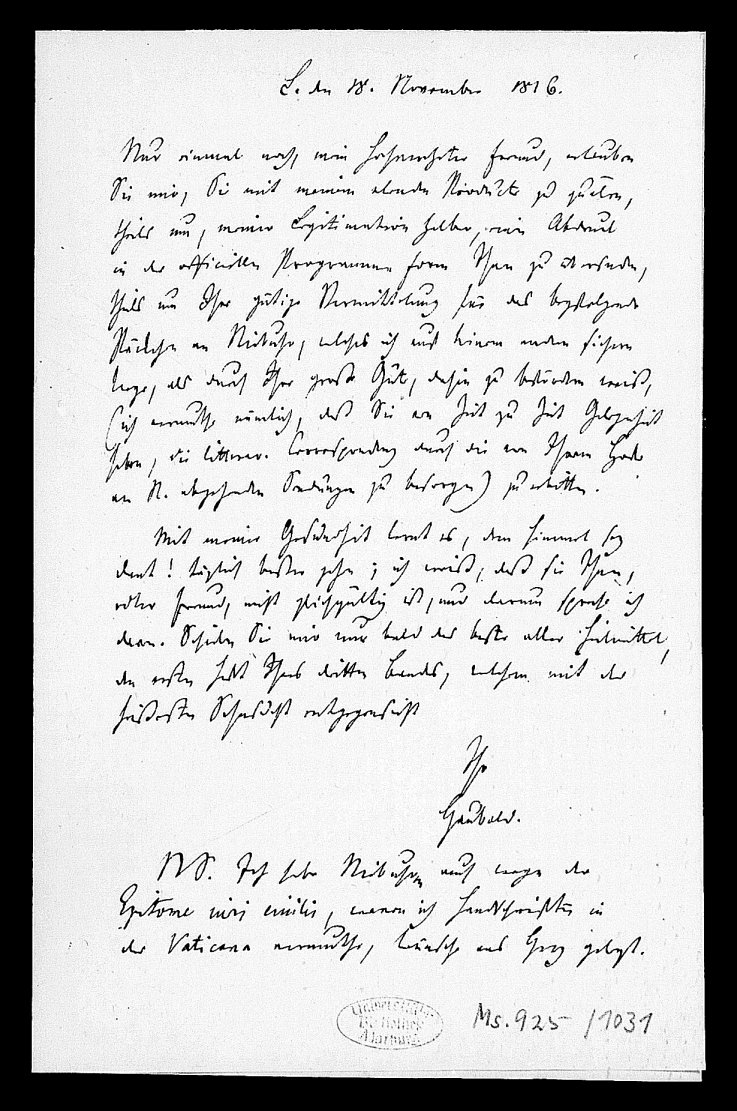 L. den 18. November 1816.
Nur einmal noch, mein hochverehrter Freund, erlauben
Sie mir, Sie mit meinen elenden Producten zu quälen,
theils um, meiner Legitimation halber, einen Abdruck
in der officiellen Programmenform Ihnen zu übersenden,
theils um Ihre gütige Vermittelung für das beyfolgende
Päckchen an Niebuhr, welches ich auf keinem andern sichern
Wege, als durch Ihre große Güte, dahin zu befördern weiß,
(ich vermuthe nämlich, daß Sie von Zeit zu Zeit Gelegenheit
haben, die litterar. Correspondenz durch die von Ihrem Hofe
an N. abgehenden Sendungen zu besorgen) zu erbitten.
Mit meiner Gesundheit lernt es, dem Himmel sey
Dank! täglich besser gehn; ich weiß, daß sie Ihnen,
edler Freund, nicht gleichgültig ist, nur darum spreche ich
davon. Schicken Sie mir nur bald das beste aller Heilmittel,
den ersten Heft Ihres dritten Bandes, welchem mit der
heißesten Sehnsucht entgegensieht
Ihr
Haubold.
NS. Ich habe Niebuhrn auch wegen der
Epitome iuris civilis, wovon ich Handschriften in
der Vaticana vermuthe, wünsche ans Herz gelegt.
Universitäts-
Bibliothek
Marburg
Ms. 925 /1031